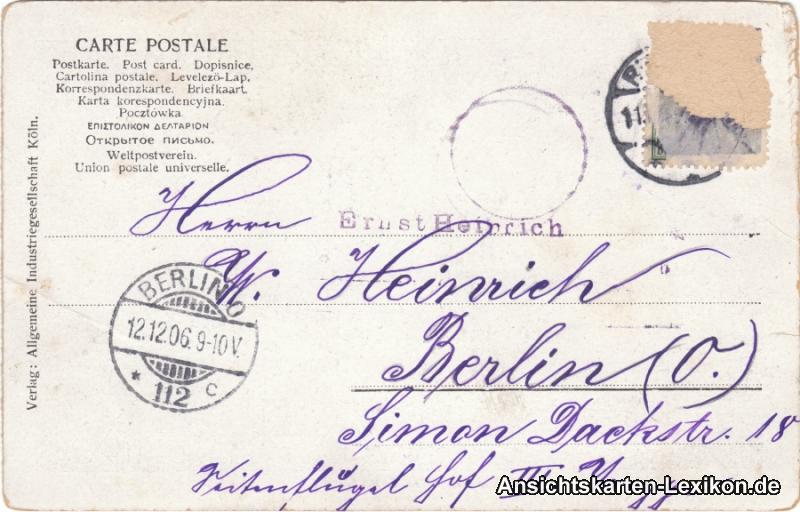 CARTE POSTALE
Postkarte. Post card. Dopisnice.
Cartolina postale. Levelező-Lap.
Korrespondenzkarte. Briefkaart.
Karta korespondencyjna.
Pocztówka
ΕΠΙΣΤΟΛΙΚΟΝ ΔΕΛΤΑΡΙΟΝ
Открытое письмо.
Weltpostverein.
Union postale universelle.
Verlag: Allgemeine Industriegesellschaft Köln.
11.
Herrn
Ernst Heinrich
W. Heinrich
BERLIN O
12.12.06. 9-10 V.
* 112 c
Berlin (O.)
Simon Dackstr. 18
Seitenflügel Hof III
Ansichtskarten-Lexikon.de